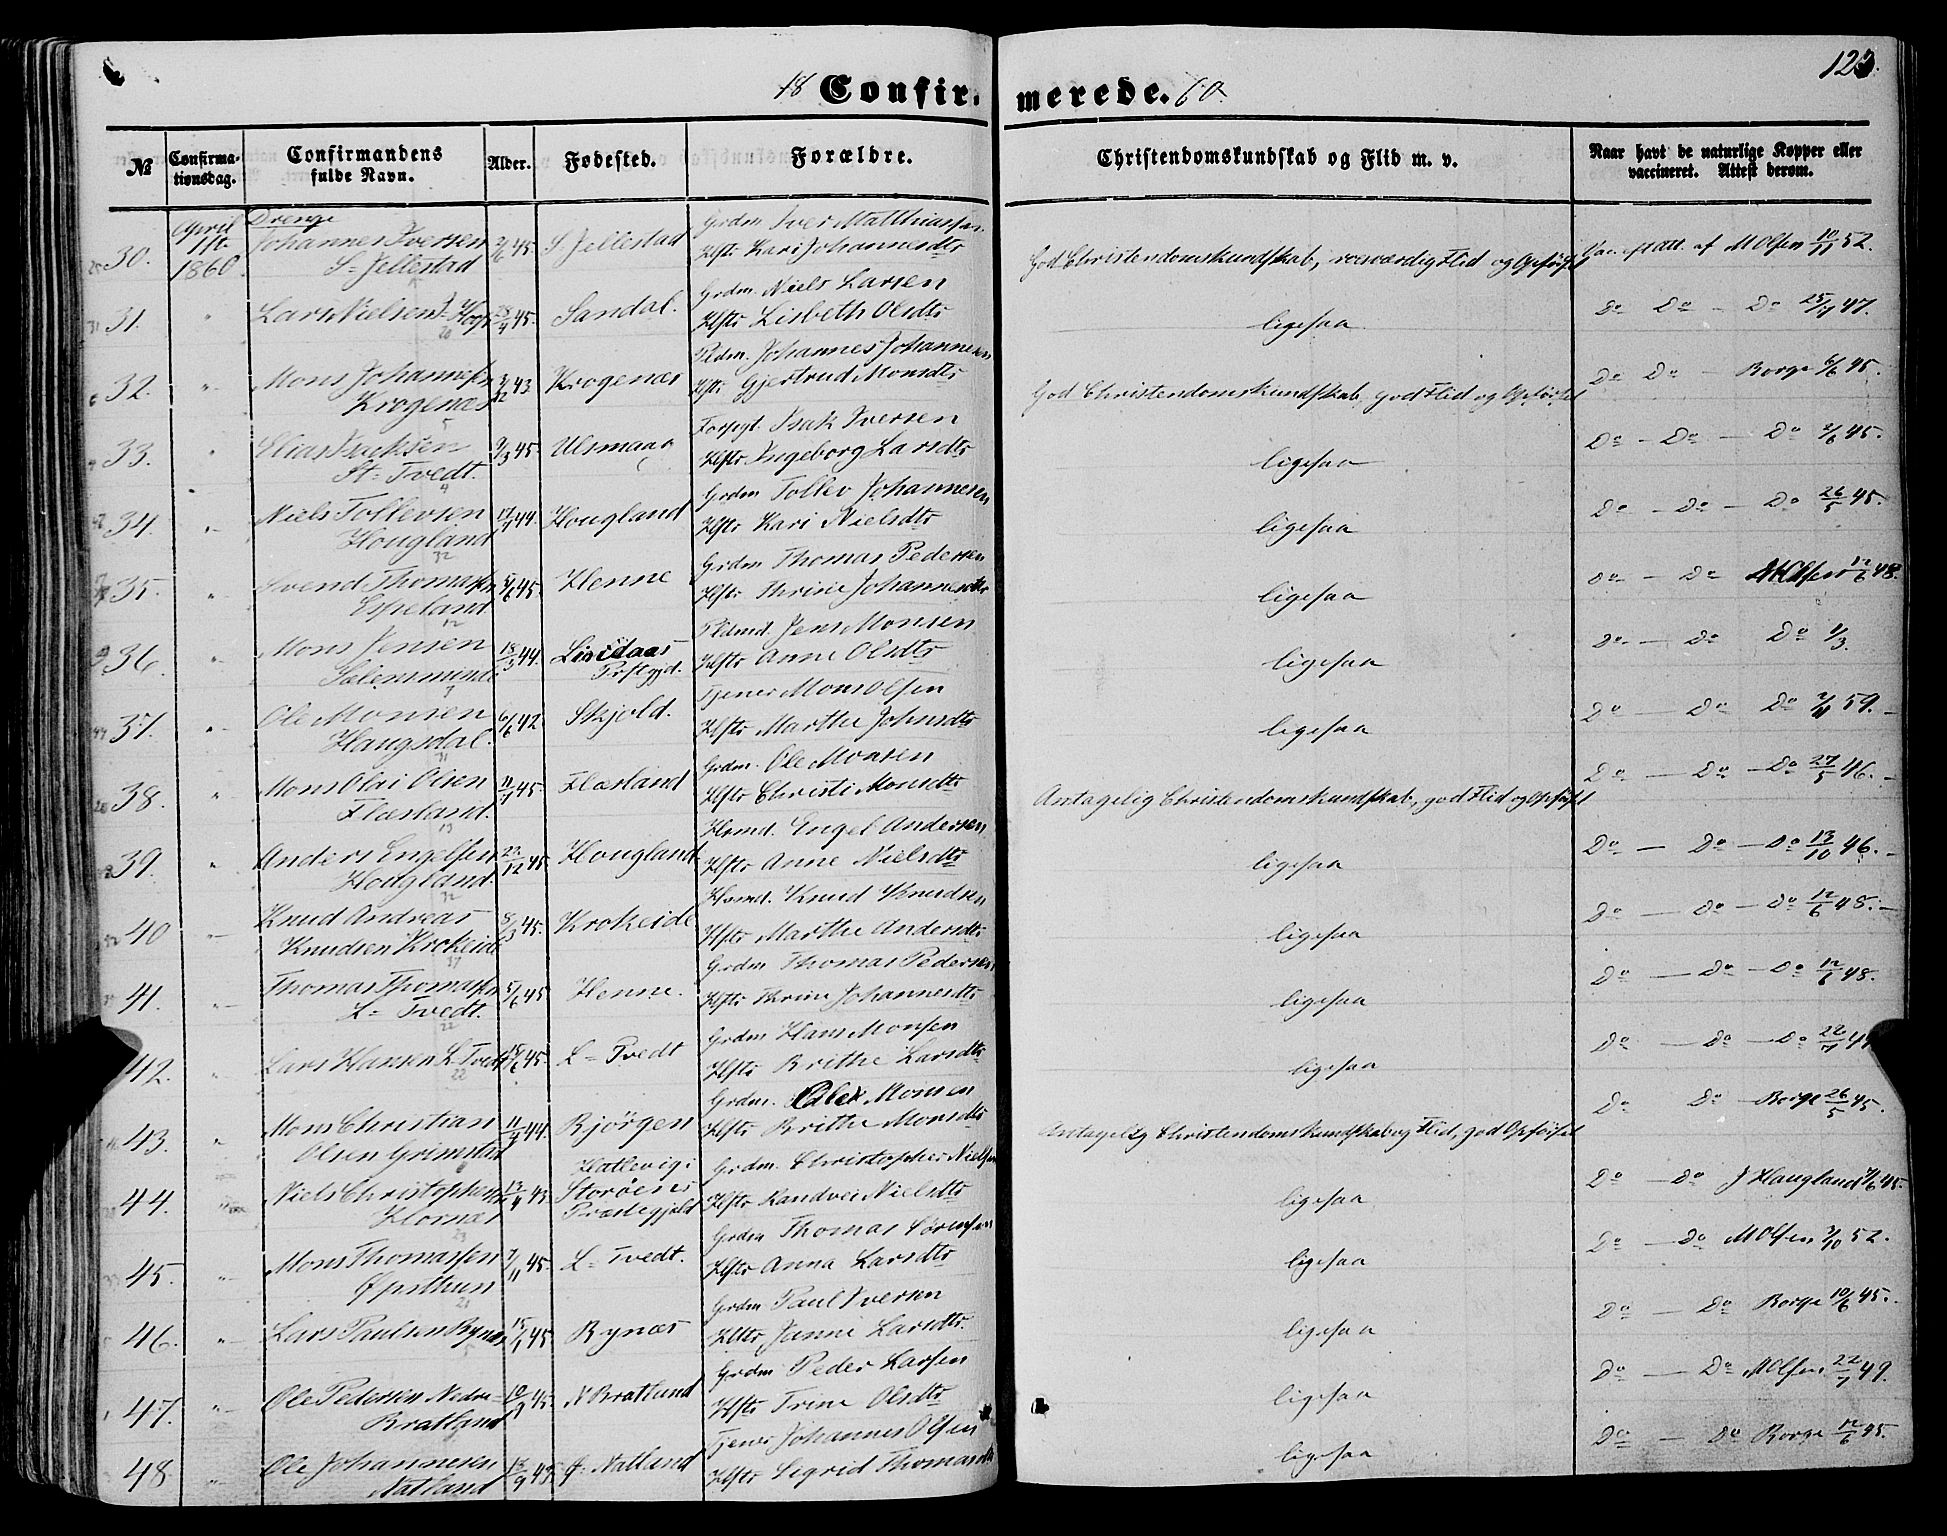 18 Confirmerede. 60.
123.
№ Confirmationsdag. Confirmandens fulde Navn. Alder. Fødested. Forældre. Christendomskundskab og Flid m. v. Naar havt de naturlige Kopper eller vaccineret. Attest derom.
April 1ste 1860 Drenge
30. Johannes Iversen S= Jellestad 45. S. Jellestad Grdm Iver Matthiassen Hstr Kari Johannesdtr God Christendomskundskab, roesværdig Flid og Opførsel Vac. ifl. att. af M Olsen 10/11 52.
31. " Lars Nielsen Hop 28/4 45. Sandal. Grdm. Niels Larsen Hstr Lisbeth Olsdtr ligesaa Do Do - Do 25/9 47.
32. " Mons Johannessen Krogenæs 43 Krogenæs Johannes Johannesen Hstr Gjertrud Monsdtr God Christendomskundskab, god Flid og Opførsel Do Do - Borge 6/6 45.
33. " Elias Isaksen St= Tvedt. 9/3 45. Ulsmaag Isak Iversen Hstr Ingeborg Larsdtr ligesaa Do - Do - Do 2/6 45.
34. " Niels Tollevsen Hougland 17/7 44. Hougland Grdm Tollev Johannesen Hstr Kari Nielsdtr ligesaa Do - Do - Do 26/5 45.
35. " Svend Thomassen Espeland 5/6 45. Henne Grdm Thomas Pedersen Hstr Thrine Johannesdtr ligesaa Do - Do M Olsen 12/6 48.
36. " Mons Jensen Sælemminde 13/3 44. Lindaas Præstgjd. Jens Monsen Hstr Anne Olsdtr ligesaa Do - Do Do
37. " Ole Monsen Haugsdal. 6/6 42 Skjold. Tjener Mons Olsen Hstr Marthe Johnsdtr ligesaa Do - Do Do 59.
38. " Mons Olai Olsen Flæsland. 11/7 45. Flæsland Grdm. Ole Monsen Hstr Christi Monsdtr Antagelig Christendomskundskab, god Flid og Opførsel Do - Do - Do 27/5 46.
39. " Anders Engelsen Hougland. 45. Hougland Husmd. Engel Andersen Hstr Anne Nielsdtr ligesaa Do - Do - Do 13/10 46.
40 " Knud Andreas Knudsen Krokeide 8/3 45. Krokeide Husmd. Knud Knudsen Hstr Marthe Andersdtr ligesaa Do - Do - Do 12/6 48.
41. " Thomas Thomassen L= Tvedt. 5/6 45 Henne. Grdm Thomas Pedersen Hstr Thrine Johannesdtr ligesaa Do - Do - Do 12/6 48.
42. " Lars Hansen L. Tvedt 45. L= Tvedt Grdm Hans Monsen Hstr Brithe Larsdtr ligesaa Do - Do - Do 22/7 49
43. " Mons Christian Olsen Grimstad 44. Bjørgen Grdm. Ole Monsen Hstr Brithe Monsdtr Antagelig Christendomskundskab og Flid, god Opførsel Do Do - Borge 26/5 45.
44. " Niels Christophersen Hornæs 13/4 43. Hatlevig i Storøens Præstegjeld Grdm. Christopher Nielsen Hstr Randvei Nielsdtr ligesaa Do - Do J Haugland 45.
45. " Mons Thomassen Øpsthun 45. L= Tvedt. Grdm Thomas Sørensen Hstr Anna Larsdtr ligesaa Do - Do M Olsen 3/10 52.
46. " Lars Paulsen Rynæs 15/1 45. Rynæs Grdm Paul Iversen Hstr Janni Larsdtr. ligesaa Do - Do Borge 10/6 45.
47. " Ole Pedersen Nedre= Bratland 45. N Bratland Grdm Peder Larsen Hstr Trine Olsdtr ligesaa Do - Do M Olsen 22/7 49.
48 " Ole Johannesen Natland 18/9 43. Natland Tjener Johannes Olsen Hstr Sigrid Thomasdtr ligesaa Do - Do Borge 12/6 45.